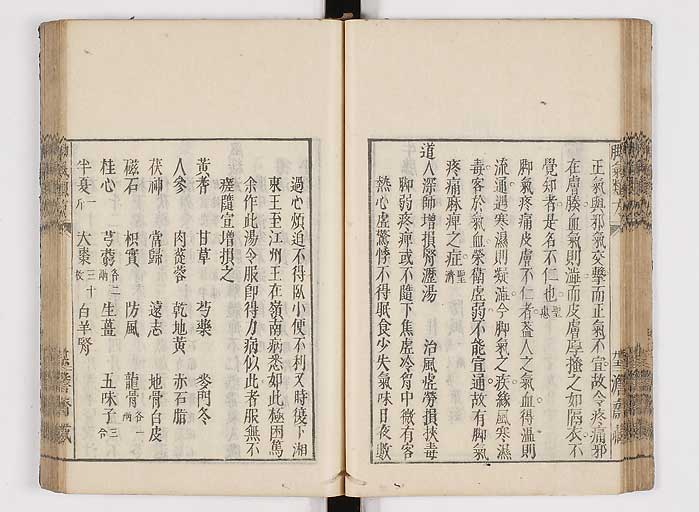 正氣與邪氣交擊而正氣不宣故令疼痛邪
在膚腠血氣則澁而皮膚厚搔之如隔衣不
覺知者是名不仁也 聖惠
脚氣疼痛皮膚不仁者蓋人之氣血得溫則
流通遇寒濕則凝澁今脚氣之疾緣風寒濕
毒客於氣血榮衛虛弱不能宣通故有脚氣
疼痛麻痺之症 聖濟
道人深師增損腎瀝湯 治風虛勞損挾毒
脚弱疼痺或不隨下焦虛冷胷中微有客
熱心虛驚悸不得眠食少失氣味日夜數
過心煩迫不得臥小便不利又時復下湘
東王至江州王在嶺南病悉如此極困篤
余作此湯令服卽得力病似此者服無不
瘥隨宜增損之
黃耆 甘草 芍藥 麥門冬
人參 肉蓯蓉 乾地黃 赤石脂
茯神 當歸 遠志 地骨白皮
磁石 枳實 防風 龍骨 各一兩
桂心 芎藭 各二兩 生薑 五味子 三合
半夏 一升 大棗 三十枚 白羊腎